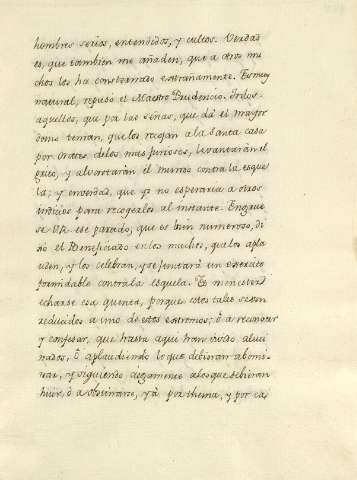 hombres serios, entendidos, y cultos. Verdad
es, que tambien me añaden, que a otros mu
chos los ha consternado estrañamente. Es muy
natural, repuso el Maestro Prudencio. Todos
aquellos, que por las señas, que dà el mayor
domo teman, que los recojan a la Santa casa
por Orates de los mas furiosos, levantaràn el
grito, y alvorotaràn el mundo contra la esque
la; y en verdad, que yo no esperaria a otros
indicios para recogerlos al instante. Engrue
se Vm ese partido, que es bien numeroso, di
xo el Beneficiado en los muchos, que los apla
uden, y los celebran, y se juntarà un exercito
formidable contra la esquela. Es menester
echarse esa quenta, porque estos tales se ven
reducidos a uno de estos extremos; ò a reconocer
y confesar, que hasta aqui han vivido aluci
nados, ò aplaudiendo lo que debieran abomi
nar, y siguiendo ciegamente a los que debieran
huir, ò a obstinarse, yà por thema, y por ca